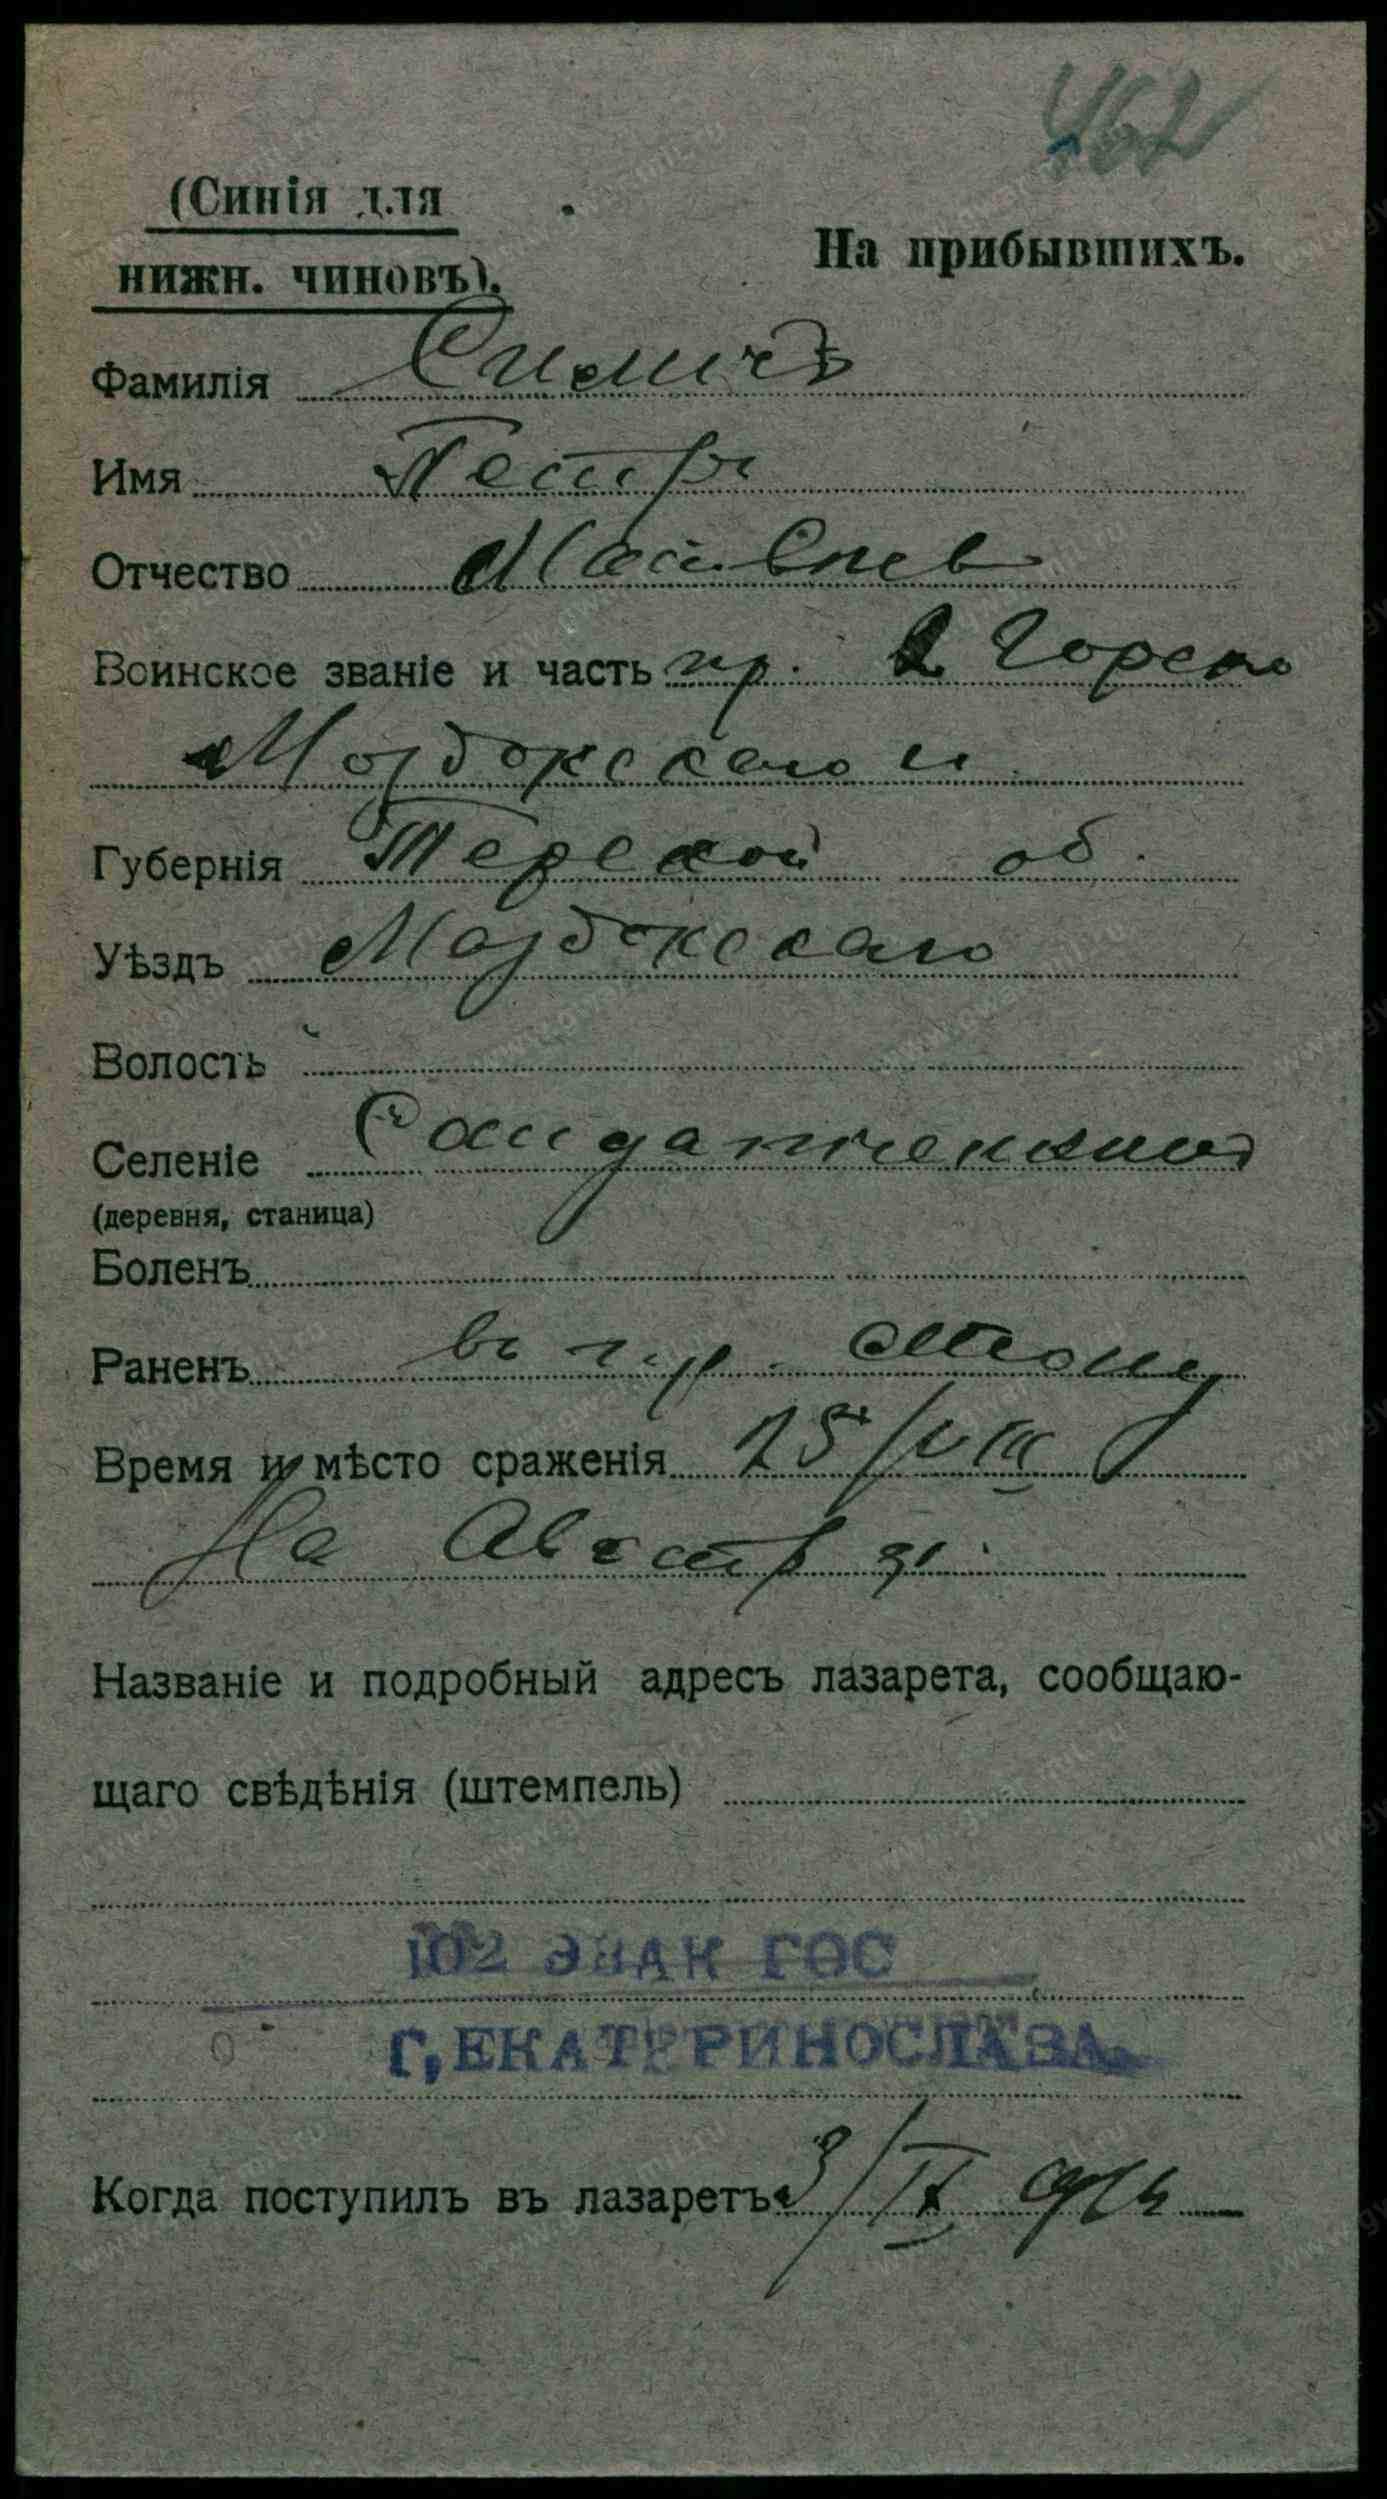 462
(Синія для
нижн. чиновъ).
На прибывшихъ.
Фамилія Симичъ
Имя Петръ
Отчество Матвѣев
Воинское званіе и часть пр. 2 Горско
Моздокскаго п.
Губернія Терской об.
Уѣздъ Моздокскаго
Волость
Селеніе
(деревня, станица)
Боленъ
Раненъ въ пр. стопу
Время и мѣсто сраженія 25/VIII
На Австр
Названіе и подробный адресъ лазарета, сообщаю-
щаго свѣдѣнія (штемпель)
102 ЭВАК ГОС
Г, ЕКАТЕРИНОСЛАВА.
Когда поступилъ въ лазаретъ 3/IX